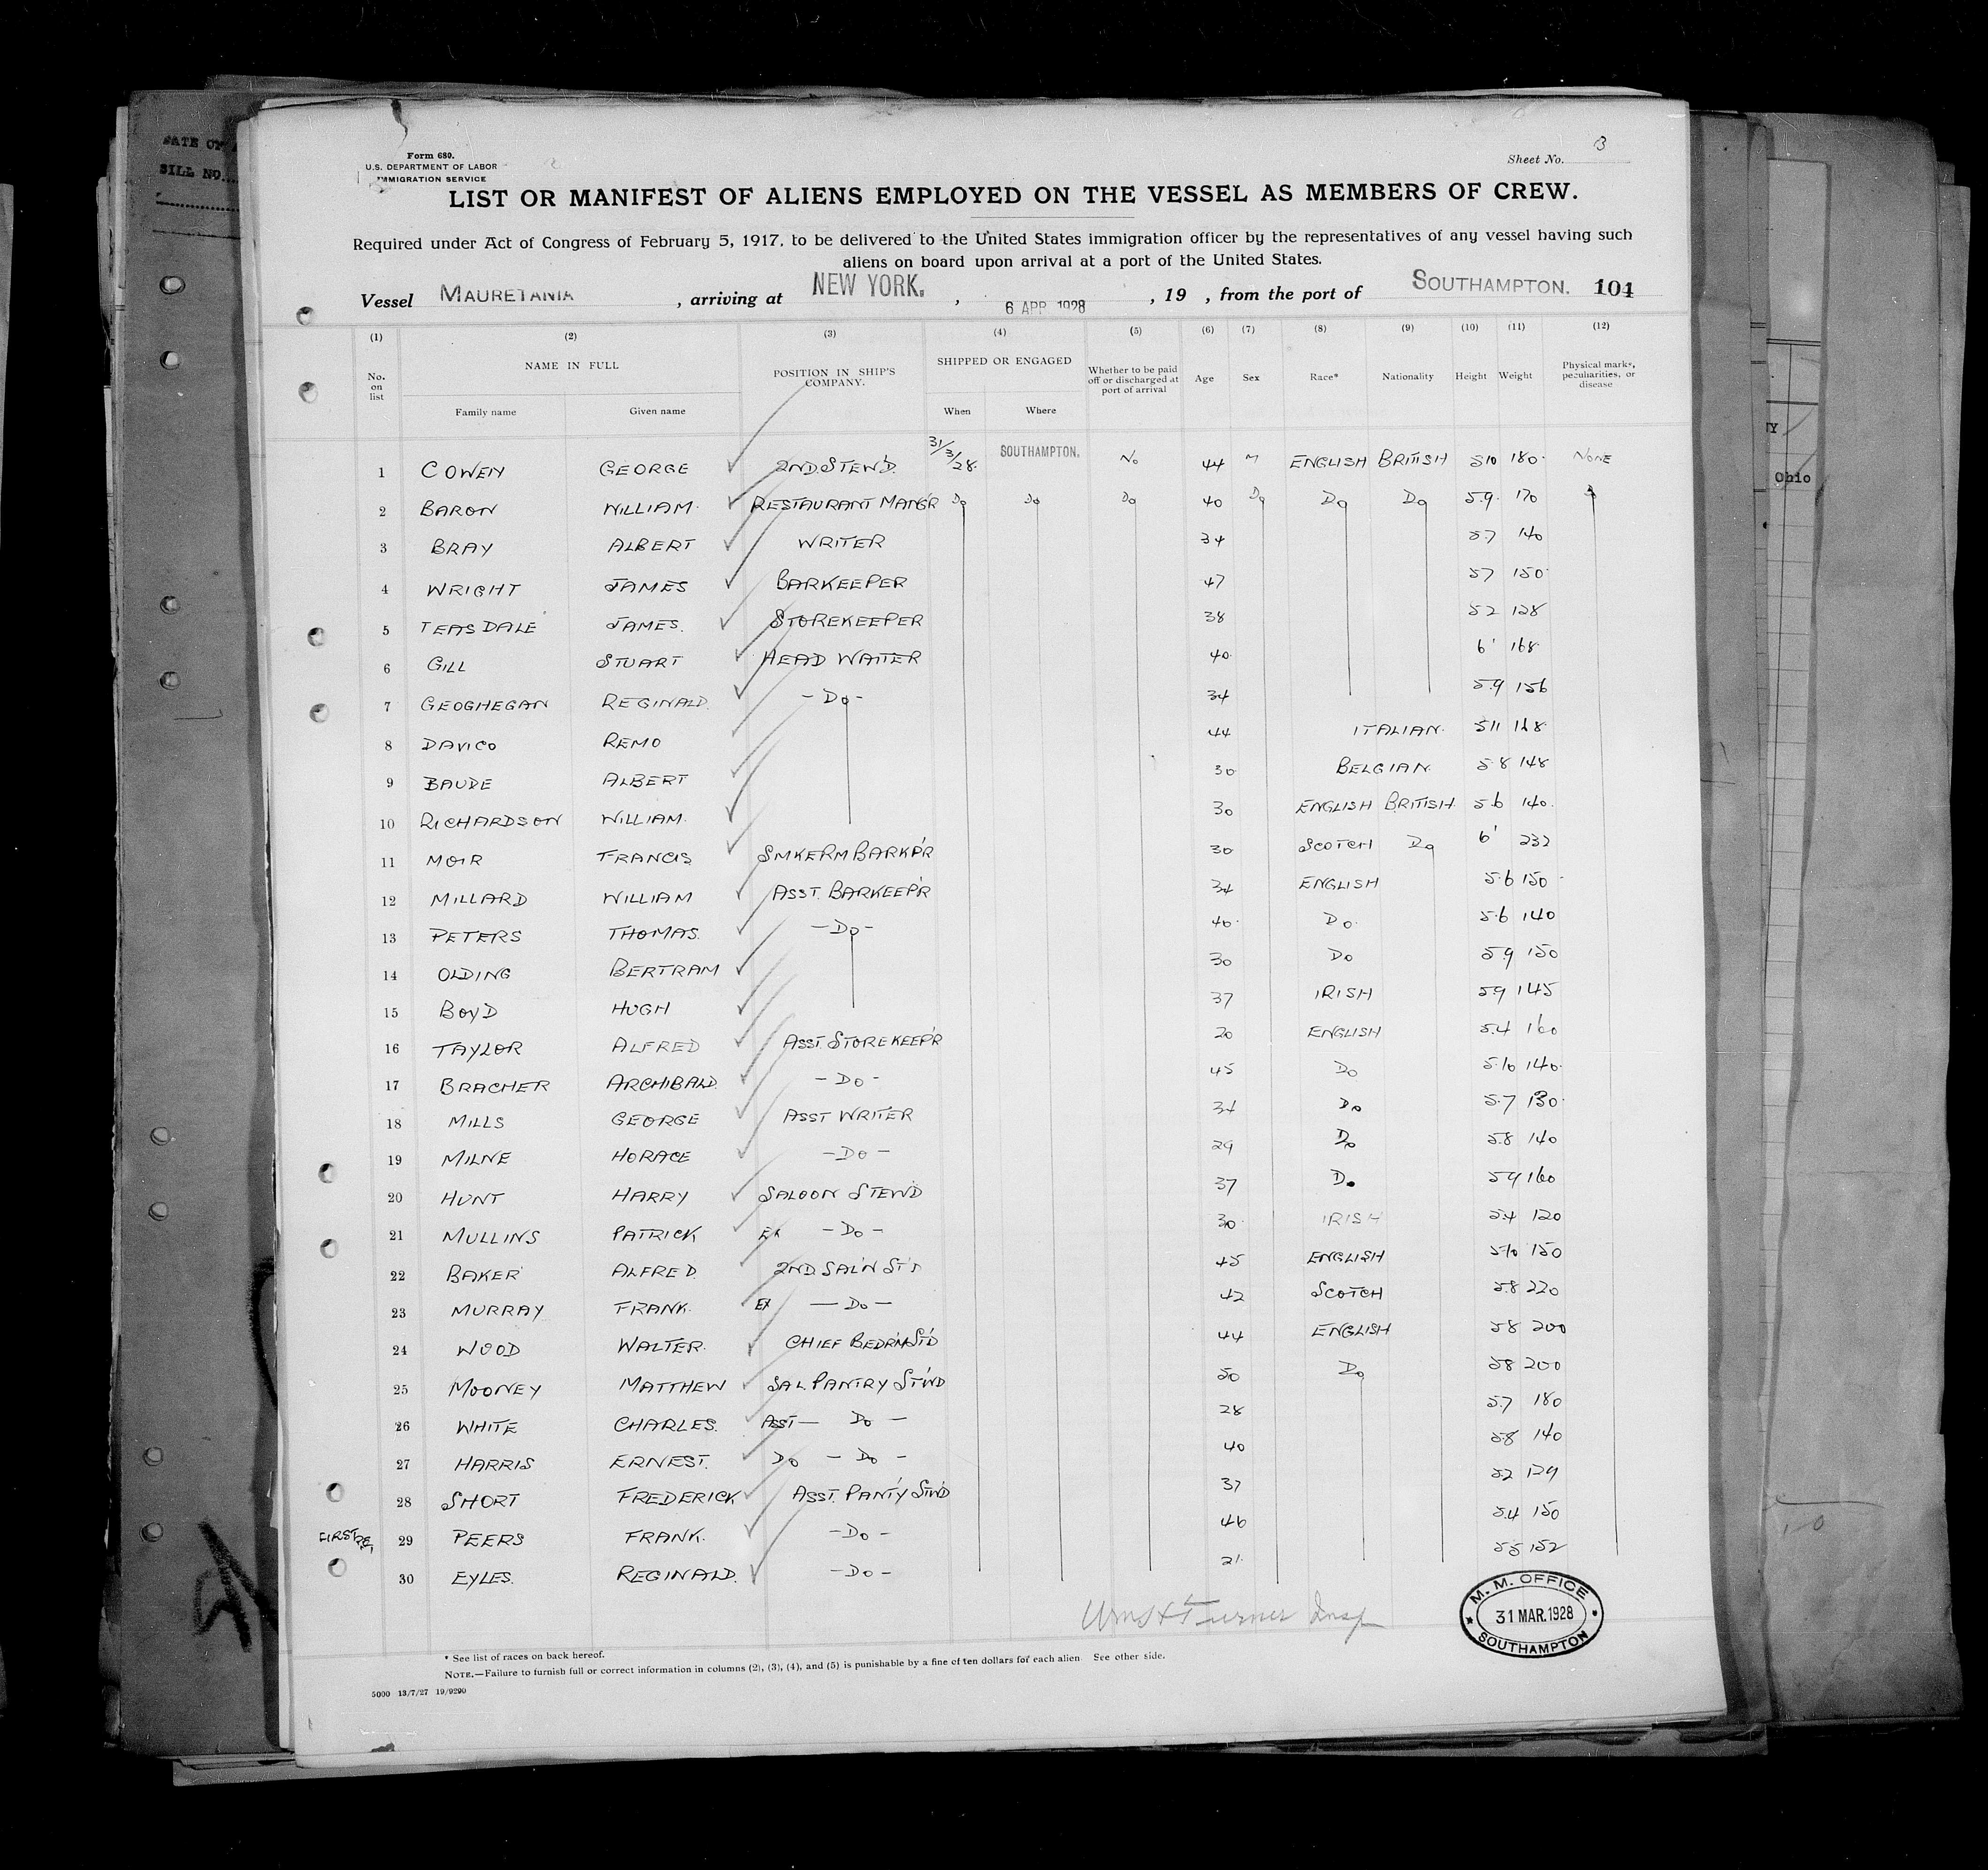 DATE OF
BILL NO.
Form 680.
U.S. DEPARTMENT OF LABOR
IMMIGRATION SERVICE
Sheet No. 3
LIST OR MANIFEST OF ALIENS EMPLOYED ON THE VESSEL AS MEMBERS OF CREW.
Required under Act of Congress of February 5, 1917, to be delivered to the United States immigration officer by the representatives of any vessel having such
aliens on board upon arrival at a port of the United States.
Vessel MAURETANIA, arriving at NEW YORK, 6 APR 1928, 19 , from the port of SOUTHAMPTON. 104
(1) (2) (3) (4) (5) (6) (7) (8) (9) (10) (11) (12)
No. on list NAME IN FULL POSITION IN SHIP'S COMPANY. SHIPPED OR ENGAGED Whether to be paid off or discharged at port of arrival Age Sex Race* Nationality Height Weight Physical marks, peculiarities, or disease
Family name Given name When Where
1 COWEN GEORGE 2ND. STEW'D 31/3/28. SOUTHAMPTON. No 44 M ENGLISH BRITISH 510 180. NONE
2 BARON WILLIAM. RESTAURANT MANG'R Do Do Do 40 Do Do Do 5.9. 170
3 BRAY ALBERT WRITER 34 5.7 140
4 WRIGHT JAMES BARKEEPER 47 57 150
5 TEASDALE JAMES. STOREKEEPER 38 52 128
6 GILL STUART HEAD WAITER 40. 6' 168
7 GEOGHEGAN REGINALD. -Do- 34 5.9 156
8 DAVICO REMO 44 ITALIAN. 511 168
9 BAUDE ALBERT 30 BELGIAN. 5.8 148
10 RICHARDSON WILLIAM. 30 ENGLISH BRITISH 5.6 140.
11 MOIR FRANCIS SMKERM BARKP'R 30 SCOTCH Do 6' 232
12 MILLARD WILLIAM ASST. BARKEEP'R 34 ENGLISH 5.6 150
13 PETERS THOMAS. -Do- 40. Do. 5.6 140
14 OLDING BERTRAM 30 Do 5.9 150
15 BOYD HUGH 37 IRISH 59 145
16 TAYLOR ALFRED ASST. STOREKEEP'R 20 ENGLISH 5.4 160
17 BRACHER ARCHIBALD. -Do- 45 Do 5.10 140.
18 MILLS GEORGE ASST WRITER 34 Do 5.7 130.
19 MILNE HORACE -Do- 29 Do 5.8 140
20 HUNT HARRY SALOON STEWD 37 Do 59 160
21 MULLINS PATRICK EX -Do- 30. IRISH 5.4 120
22 BAKER ALFRED. 2ND. SAL'N ST'D 45 ENGLISH 5.10 150
23 MURRAY FRANK. EX -Do- 42 SCOTCH 5.8 220
24 WOOD WALTER. CHIEF BEDR'M ST'D 44 ENGLISH 58 200
25 MOONEY MATTHEW SAL PANTRY ST'WD 50 Do 58 200
26 WHITE CHARLES. ASST- Do - 28 5.7 180
27 HARRIS ERNEST. Do - Do - 40 5.8 140
28 SHORT FREDERICK ASST. PANT'Y ST'WD 37 52 129
29 PEERS FRANK. -Do- 46 5.4 150
30 EYLES. REGINALD. -Do- 21. 55 152
Turner Insp
M. M. OFFICE
31 MAR. 1928
SOUTHAMPTON
* See list of races on back hereof.
NOTE.—Failure to furnish full or correct information in columns (2), (3), (4), and (5) is punishable by a fine of ten dollars for each alien. See other side.
5000 13/7/27 19/9290
Ohio